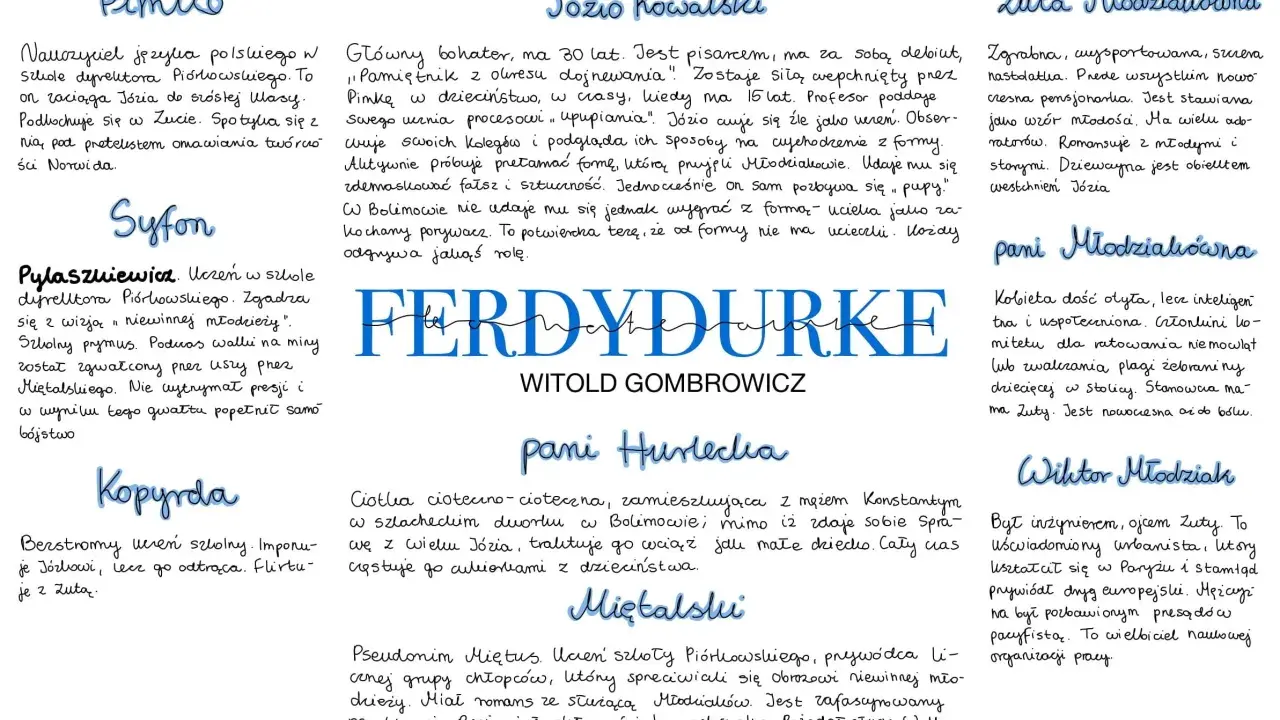 Pimko
Nauczyciel języka polskiego w
szkole dyrektora Piórkowskiego. To
on zaciąga Józia do szóstej klasy.
Podkochuje się w Zucie. Spotyka się z
nią pod pretekstem omawiania twórczo-
ści Norwida.
Syfon
Pylaszkiewicz. Uczeń w szkole
dyrektora Piórkowskiego. Zgadza
się z wizją „niewinnej młodzieży".
Szkolny prymus. Podczas walki na miny
został zgwałcony przez uszy przez
Miętalskiego. Nie wytrzymał presji i
w wyniku tego gwałtu popełnił samo-
bójstwo
Kopyrda
Bezstronny uczeń szkolny. Imponu-
je Józkowi, lecz go odtrąca. Flirtu-
je z Zutą.
Józio Kowalski
Główny bohater, ma 30 lat. Jest pisarzem, ma za sobą debiut,
„Pamiętnik z okresu dojrzewania". Zostaje siłą wepchnięty przez
Pimkę w dzieciństwo, w czasy, kiedy ma 15 lat. Profesor poddaje
swego ucznia procesowi „upupiania". Józio czuje się źle jako uczeń. Obser-
wuje swoich kolegów i podgląda ich sposoby na wychodzenie z formy.
Aktywnie próbuje przełamać formę, którą przyjęli Młodziakowie. Udaje mu się
zdemaskować fałsz i sztuczność. Jednocześnie on sam pozbywa się „pupy."
W Bolimowie nie udaje mu się jednak wygrać z formą - ucieka jako za-
kochany porywacz. To potwierdza tezę, że od formy nie ma ucieczki. Każdy
odgrywa jakąś rolę.
FERDYDURKE
WITOLD GOMBROWICZ
pani Hurlecka
Ciotka cioteczno-cioteczna, zamieszkująca z mężem Konstantym
w szlacheckim dworku w Bolimowie; mimo iż zdaje sobie spra-
wę z wieku Józia, traktuje go wciąż jak małe dziecko. Cały czas
częstuje go cukierkami z dzieciństwa.
Miętalski
Pseudonim Miętus. Uczeń szkoły Piórkowskiego, przywódca li-
cznej grupy chłopców, który sprzeciwiali się obrazowi niewinnej mło-
dzieży. Miał romans ze służącą Młodziaków. Jest zafascynowany
Zuta Młodziakówna
Zgrabna, wysportowana, szczera
nastolatka. Przede wszystkim nowo-
czesna pensjonarka. Jest stawiana
jako wzór młodości. Ma wielu ado-
ratorów. Romansuje z młodymi i
starymi. Dziewczyna jest obiektem
westchnień Józia
pani Młodziakówna
Kobieta dość otyła, lecz inteligen-
tna i uspołeczniona. Członkini ko-
mitetu dla ratowania niemowląt
lub zwalczania plagi żebraniny
dziecięcej w stolicy. Stanowcza ma-
ma Zuty. Jest nowoczesna aż do bólu.
Wiktor Młodziak
Był inżynierem, ojcem Zuty. To
uświadomiony urbanista, który
kształcił się w Paryżu i stamtąd
przywiódł dryg europejski. Mężczyz-
na był pozbawionym przesądów
pacyfistą. To wielbiciel naukowej
organizacji pracy.